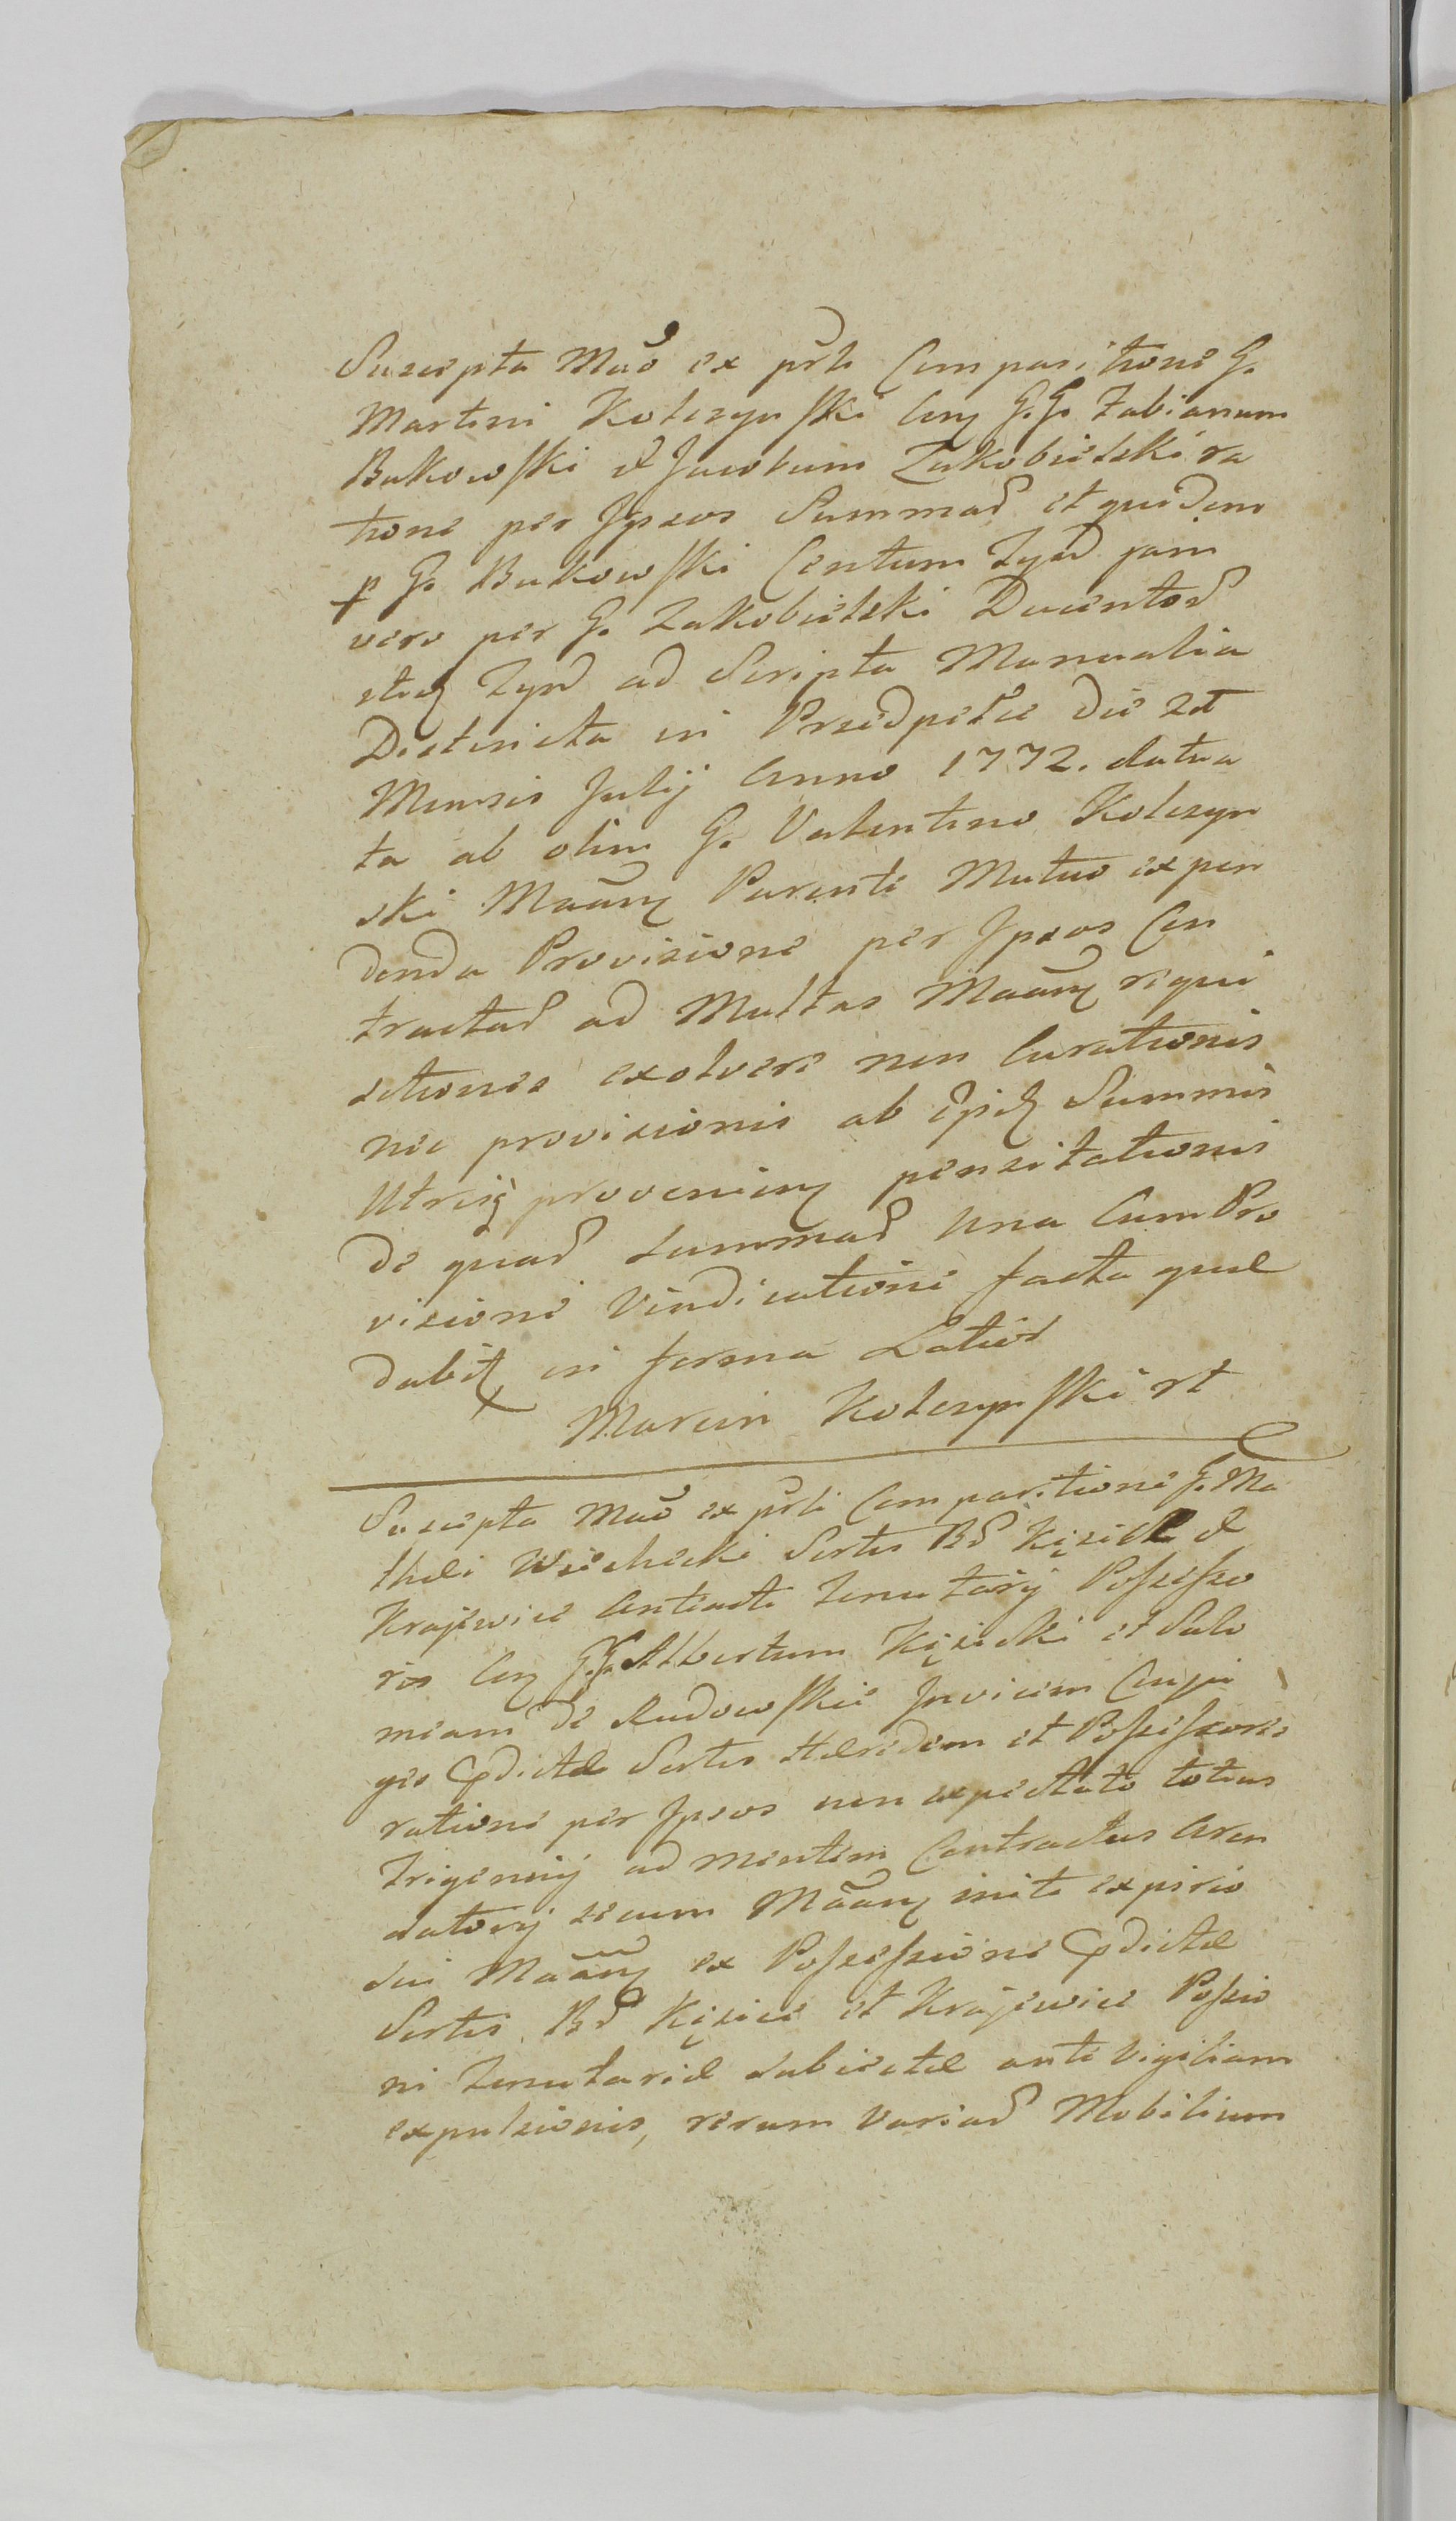 Suscepta Mão ex prãti Comparitione G.
Martini Kolczynski Cong G.G. Fabianum
Bukowski et Jacobum Zakobielski ra
tione per Ipsos Summas et quidem
p G. Bukowski Centum Zyd jam
vero per G. Zakobielski Ducentos
Zyd ad Scripta Manualia
Districta in Przedpelce die 2ct
Mensis Julij Anno 1772. datua
ta ab olim G. Valentino Kolczyn
ski Mãang Parenti Mutuo expen
denda Provisione per Ipsos Con
tractas ad Multas Mãang requi
sitiones exolvere non Curationis
nec provisionis ab Summis
Utrisq provenieng pensitationis
de quas summas una Cum Pro
visione Vindicatione facta quæ
dabit in forma Latius
Marcin Kolczynski rt
Suscepta Mão ex prãti Comparitione G. Ma
thei Wiechecki Sortis Kęsick et
Krajewice Anteacti Tenutarij Possesso
ris Cong G.G. Albertum Kęsicki et Salo
meam de Rudowskie Invicem Conju
ges dictæ Sortis Hæredem et Possessores
ratione per Ipsos non expectato totius
Trigennij ad mentem Contractus Aren
datorij secum Mãang initi expirio
sui Mãang ex Possessione dictæ
Sortis Kęsice et Krajewice Possio
ni Tenutariæ subiectæ ante Vigiliam
expulsionis, rerum Varias Mobilium